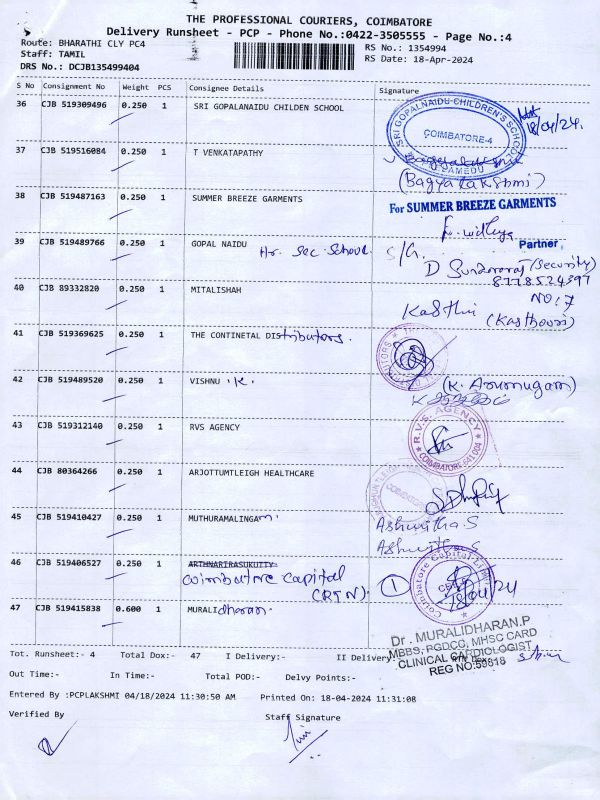 THE PROFESSIONAL COURIERS, COIMBATORE
Delivery Runsheet - PCP - Phone No.:0422-3505555 - Page No.:4
Route: BHARATHI CLY PC4 RS No.: 1354994
Staff: TAMIL RS Date: 18-Apr-2024
DRS No.: DCJB135499404
S No Consignment No Weight PCS Consignee Details Signature
36 CJB 519309496 0.250 1 SRI GOPALANAIDU CHILDEN SCHOOL
SRI GOPALNAIDU CHILDREN'S SCHOOL
COIMBATORE-4
18/04/24.
37 CJB 519516084 0.250 1 T VENKATAPATHY
(Bagyalakshmi)
38 CJB 519487163 0.250 1 SUMMER BREEZE GARMENTS For SUMMER BREEZE GARMENTS
Partner
39 CJB 519489766 0.250 1 GOPAL NAIDU Hr. Sec. School. S/G.
D Sundararaj (Security)
8778524397
40 CJB 89332820 0.250 1 MITALISHAH
NO: 7
Kasthuri (Kasthoori)
41 CJB 519369625 0.250 1 THE CONTINETAL DIstributors.
42 CJB 519489520 0.250 1 VISHNU .K. (K. Arumugam)
43 CJB 519312140 0.250 1 RVS AGENCY
R.V.S. AGENCY
COIMBATORE 641 004
44 CJB 80364266 0.250 1 ARJOTTUMTLEIGH HEALTHCARE
45 CJB 519410427 0.250 1 MUTHURAMALINGAm. Ashwitha S
Ashwitha S
46 CJB 519406527 0.250 1 ARTHNARIRASUKUTTY
Coimbatore capital
(RTN) 1
Coimbatore Capital
18/04/24
47 CJB 519415838 0.600 1 MURALIdharan.
Dr. MURALIDHARAN.P
MBBS, PGDCG, MHSC CARD
CLINICAL CARDIOLOGIST
REG NO:59818
Tot. Runsheet:- 4 Total Dox:- 47 I Delivery:- II Delivery:-
Out Time:- In Time:- Total POD:- Delvy Points:-
Entered By :PCPLAKSHMI 04/18/2024 11:30:50 AM Printed On: 18-04-2024 11:31:08
Verified By Staff Signature